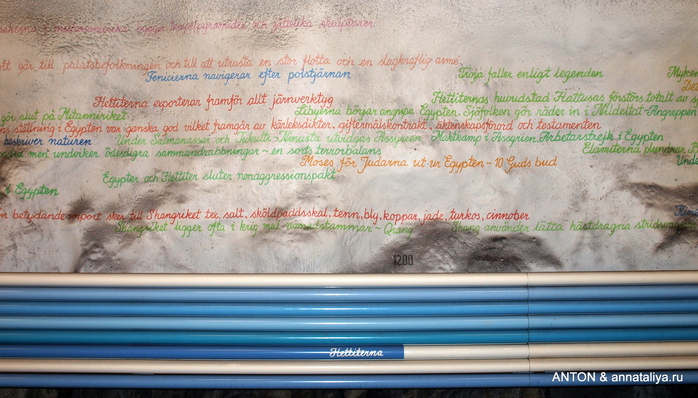 bygger tempelpyramider och jättelika skulpturer.
går till palatsbefolkningen och till att utrusta en stor flotta och en slagkraftig armé.
Fenicierna navigerar efter polstjärnan
Troja faller enligt legenden
Hettiterna exporterar framför allt järnverktyg
Hettiternas huvudstad Hattusas förstörs totalt av
gör slut på Mitanniriket
Libyerna börjar angripa Egypten. Sjöfolken gör räder in i Nildeltat-Angreppen
ställning i Egypten var ganska god vilket framgår av kärleksdikter, giftermålskontrakt, äktenskapsförord och testamenten
beskriver naturen
Under Salmanassar och Tukulti Ninurta utvidgas Assyrien
Maktkamp i Assyrien. Arbetarstrejk i Egypten
men undviker ödesdigra sammandrabbningar - en sorts terrorbalans
Elamiterna plundrar
Moses för Judarna ut ur Egypten - 10 Guds bud
Under
Egypten och Hettiter sluter nonaggressionspakt
i Egypten
betydande export sker till Shangriket tex, salt, sköldpaddsskal, tenn, bly, koppar, jade, turkos, cinnober
Shangriket ligger ofta i krig med nomadstammar - Qiang
Shang använder lätta hästdragna
1200
Hettiterna
ANTON & annataliya.ru